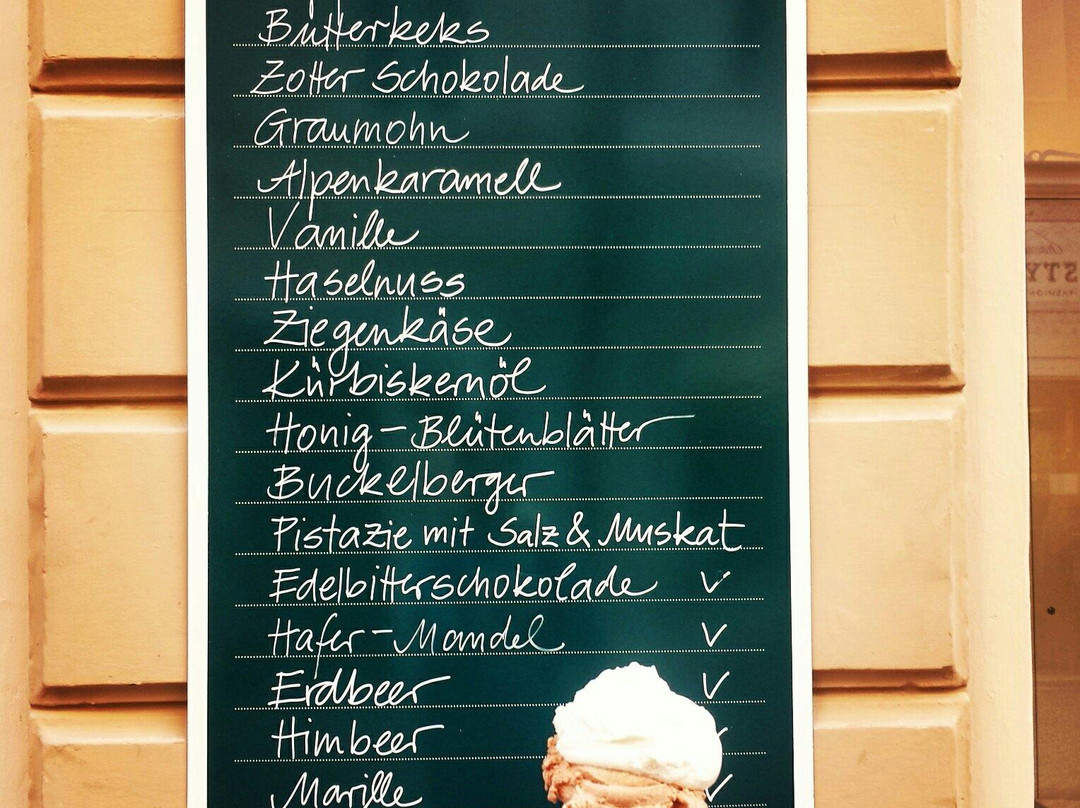 Butterkeks
Zotter Schokolade
Graumohn
Alpenkaramell
Vanille
Haselnuss
Ziegenkäse
Kürbiskernöl
Honig-Blütenblätter
Buckelberger
Pistazie mit Salz & Muskat
Edelbitterschokolade ✓
Hafer-Mandel ✓
Erdbeer ✓
Himbeer ✓
Marille ✓